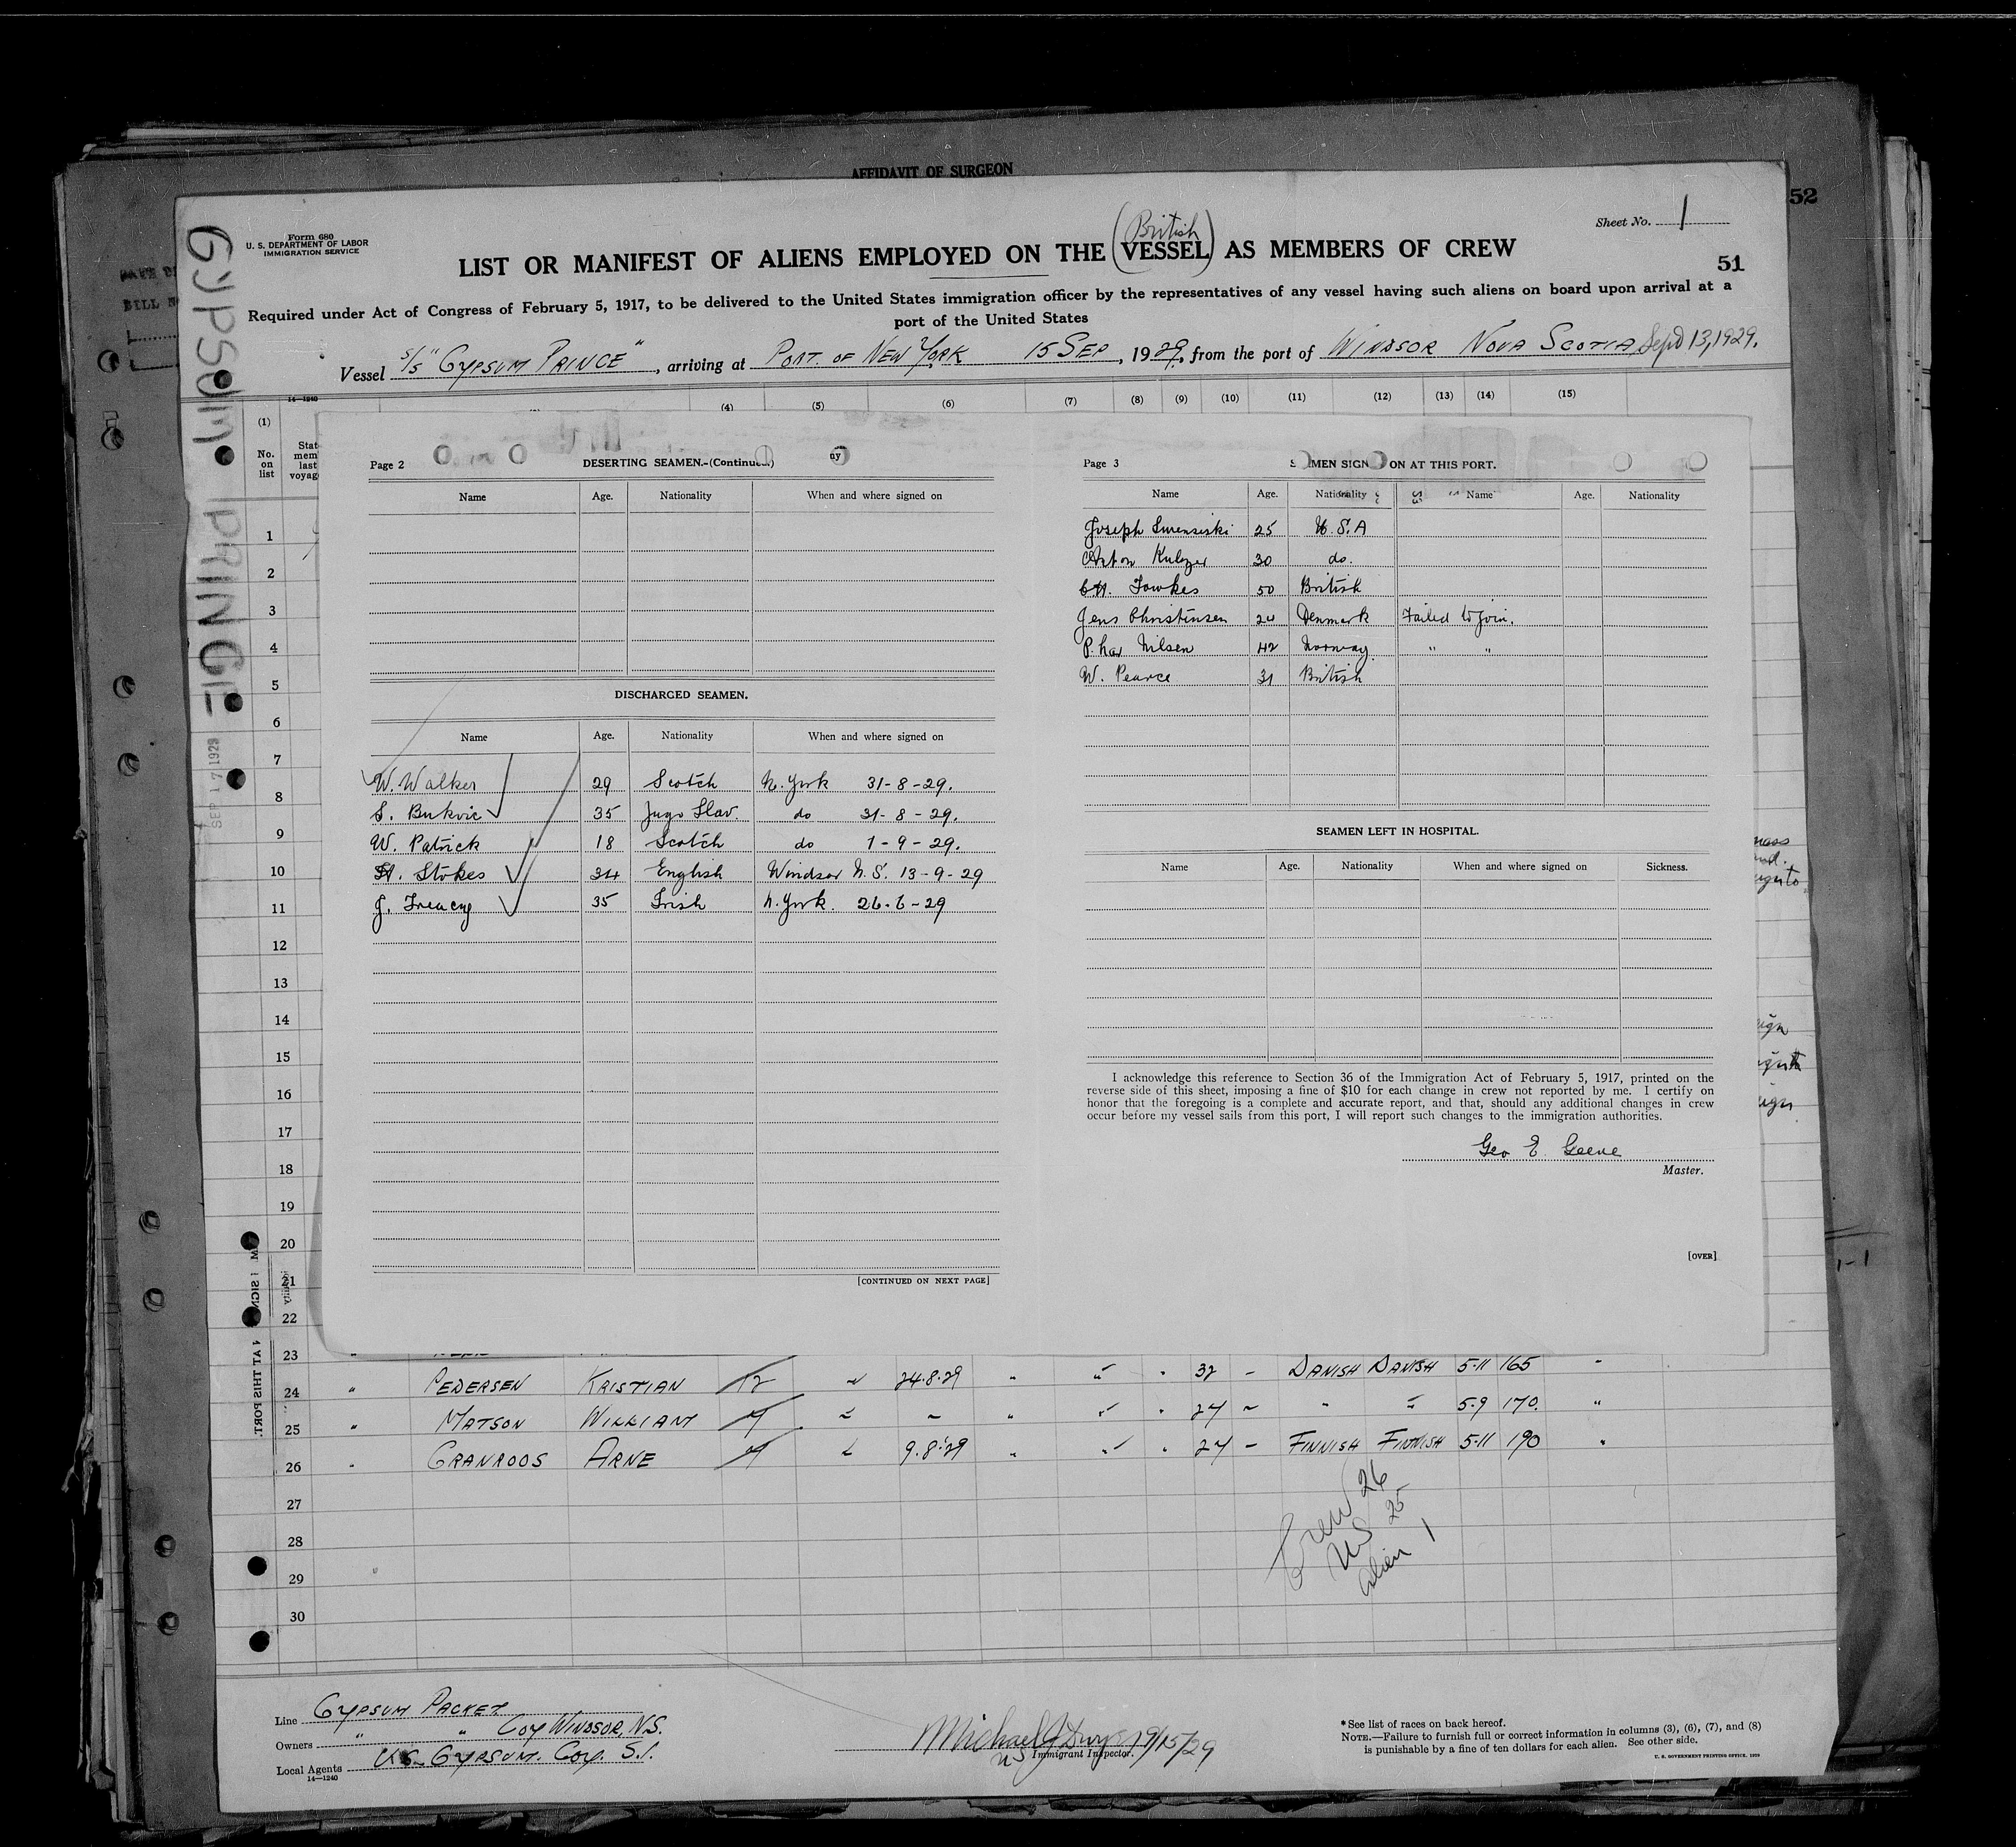 AFFIDAVIT OF SURGEON
52
Form 680
U. S. DEPARTMENT OF LABOR
IMMIGRATION SERVICE
Sheet No. 1
(British)
LIST OR MANIFEST OF ALIENS EMPLOYED ON THE VESSEL AS MEMBERS OF CREW
51
Required under Act of Congress of February 5, 1917, to be delivered to the United States immigration officer by the representatives of any vessel having such aliens on board upon arrival at a
port of the United States
Vessel S/S "GYPSUM PRINCE", arriving at PORT OF NEW YORK 15 SEP, 1929, from the port of WINDSOR NOVA SCOTIA Sepd 13, 1929.
GYPSUM PRINCE
SEP 17 1929
14—1240
(1) (4) (5) (6) (7) (8) (9) (10) (11) (12) (13) (14) (15)
No. on list
Page 2 DESERTING SEAMEN.-(Continued.)
Name Age. Nationality When and where signed on
DISCHARGED SEAMEN.
Name Age. Nationality When and where signed on
W. Walker 29 Scotch N. York 31-8-29.
S. Bukvic 35 Jugo Slav. do 31-8-29.
W. Patrick 18 Scotch do 1-9-29.
H. Stokes 34 English Windsor N.S. 13-9-29
J. Treacy 35 Irish N. York. 26-6-29
[CONTINUED ON NEXT PAGE]
Page 3 SEAMEN SIGN ON AT THIS PORT.
Name Age. Nationality Name Age. Nationality
Joseph 25 U.S.A
Anton 30 do.
Fowkes 50 British
Jens Christensen 24 Denmark Failed to join.
Nilsen 42 Norway " "
W. Pearce 31 British
SEAMEN LEFT IN HOSPITAL.
Name Age. Nationality When and where signed on Sickness.
I acknowledge this reference to Section 36 of the Immigration Act of February 5, 1917, printed on the
reverse side of this sheet, imposing a fine of $10 for each change in crew not reported by me. I certify on
honor that the foregoing is a complete and accurate report, and that, should any additional changes in crew
occur before my vessel sails from this port, I will report such changes to the immigration authorities.
Geo E.
Master.
[OVER]
1
2
3
4
5
6
7
8
9
10
11
12
13
14
15
16
17
18
19
20
21
22
23
24 " PEDERSEN KRISTIAN 12 " 24.8.29 " " " 32 - DANISH DANISH 5-11 165 "
25 " MATSON WILLIAM " " " " " 24 - " " 5-9 170. "
26 " GRANROOS ARNE " 9.8.29 " " " 24 - FINNISH FINNISH 5-11 190 "
27
28
29
30
Crew 26
US 25
Alien 1
Line GYPSUM PACKET
Owners " " COY WINDSOR, N.S.
Local Agents U.S. GYPSUM. COY. S.I.
14—1240
Michael J Dwyer 9/15/29
US Immigrant Inspector.
*See list of races on back hereof.
NOTE.—Failure to furnish full or correct information in columns (3), (6), (7), and (8)
is punishable by a fine of ten dollars for each alien. See other side.
U. S. GOVERNMENT PRINTING OFFICE, 1929